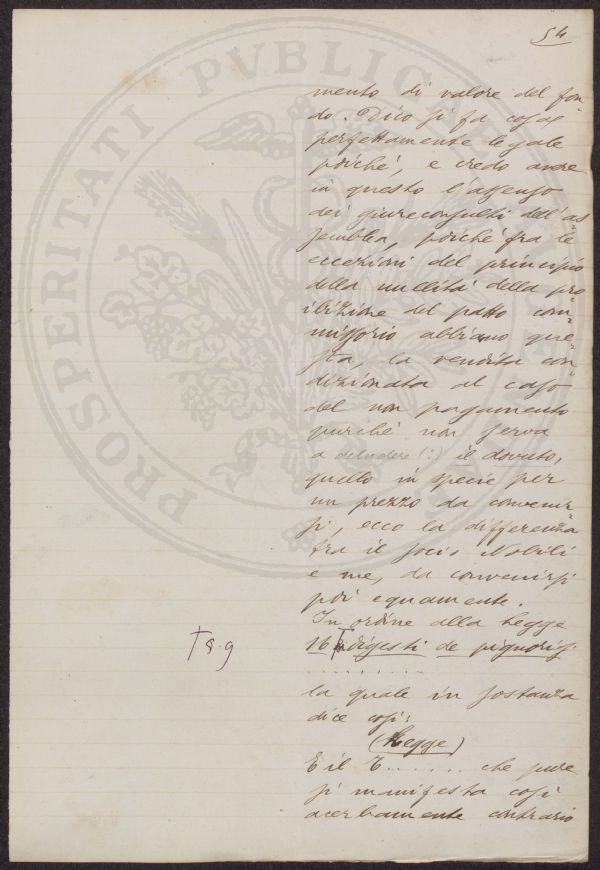 54
mento di valore del fon-
do. Dico si fa cosa
perfettamente legale
poiché, e credo avere
in questo l'assenso
dei giureconsulti dell'as
semblea, poiché fra le
eccezioni del principio
della nullità della pro
ibizione del patto com-
missorio abbiamo que-
sta, la vendita con
dizionata al caso
del non pagamento
purché non serva
a deludere (:) il dovuto,
quello in specie per
un prezzo da convenir-
si, ecco la differenza
tra il socio Nobili
e me, da convenirsi
poi equamente.
In ordine alla Legge
† 8.9
16 † digesti de pignoris.
. . . . . . . . .
la quale in sostanza
dice così:
(Legge)
E il T. . . . . . che pure
si manifesta così
acerbamente contrario
PROSPERITATI PUBLICAE